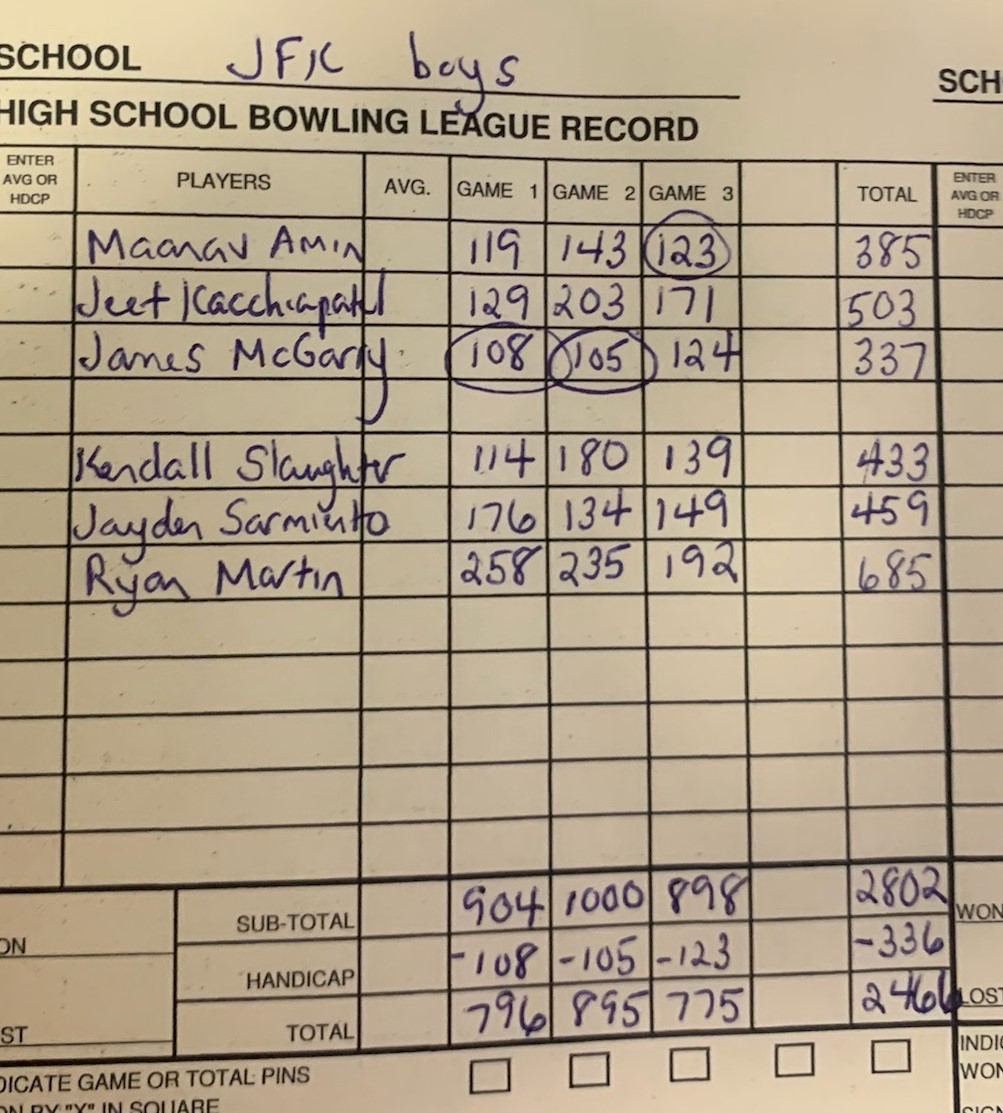 SCHOOL JFK boys
SCH
HIGH SCHOOL BOWLING LEAGUE RECORD
ENTER AVG OR HDCP PLAYERS AVG. GAME 1 GAME 2 GAME 3 TOTAL ENTER AVG OR HDCP
Maanav Amin 119 143 123 385
Jeet Kacchiapatel 129 203 171 503
James McGarry 108 105 124 337
Kendall Slaughter 114 180 139 433
Jayden Sarmiento 176 134 149 459
Ryan Martin 258 235 192 685
SUB-TOTAL 904 1000 898 2802 WON
ON HANDICAP -108 -105 -123 -336
ST TOTAL 796 895 775 2466 LOST
DICATE GAME OR TOTAL PINS INDIC
ON BY "X" IN SQUARE WON